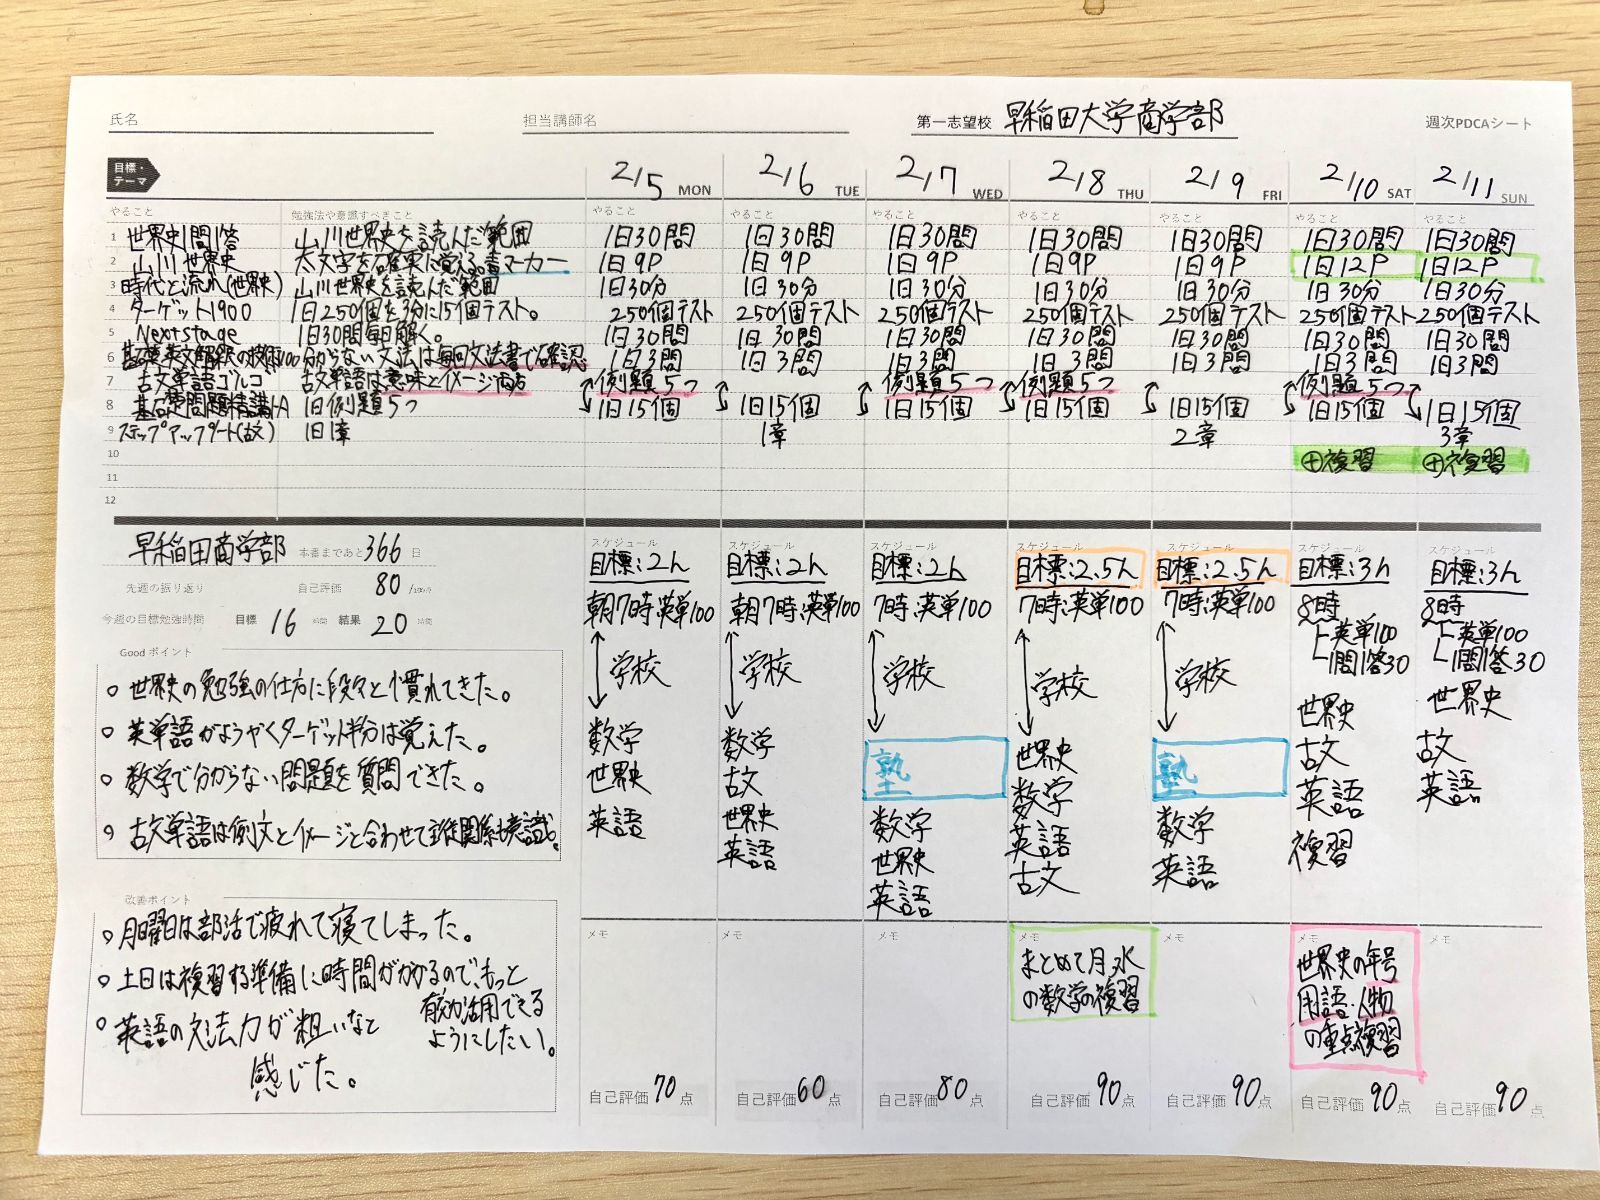 氏名
担当講師名
第一志望校 早稲田大学商学部
週次PDCAシート
目標・テーマ
2/5 MON
2/6 TUE
2/7 WED
2/8 THU
2/9 FRI
2/10 SAT
2/11 SUN
やること 勉強法や意識すべきこと やること やること やること やること やること やること やること
1 世界史1問1答 山川世界史を読んだ範囲 1日30問 1日30問 1日30問 1日30問 1日30問 1日30問 1日30問
2 山川世界史 太文字を確実に覚える。青マーカー 1日9P 1日9P 1日9P 1日9P 1日9P 1日12P 1日12P
3 時代と流れ(世界史) 山川世界史を読んだ範囲 1日30分 1日30分 1日30分 1日30分 1日30分 1日30分 1日30分
4 ターゲット1900 1日250個を3分に15個テスト。 250個テスト 250個テスト 250個テスト 250個テスト 250個テスト 250個テスト 250個テスト
5 Nextstage 1日30問毎日解く。 1日30問 1日30問 1日30問 1日30問 1日30問 1日30問 1日30問
6 基礎英文解釈の技術100 分からない文法は毎回文法書で確認 1日3問 1日3問 1日3問 1日3問 1日3問 1日3問 1日3問
7 古文単語ゴルゴ 古文単語は意味とイメージ両方 例題5つ 例題5つ 例題5つ 例題5つ
8 基礎問題精講1A 1日例題5つ 1日15個 1日15個 1日15個 1日15個 1日15個 1日15個 1日15個
9 ステップアップノート(古文) 1日1章 1章 2章 3章
10 ⊕複習 ⊕複習
11
12
早稲田商学部 本番まであと 366 日
先週の振り返り 自己評価 80 /100点
今週の目標勉強時間 目標 16 時間 結果 20 時間
Good ポイント
世界史の勉強の仕方に段々と慣れてきた。
英単語がようやくターゲット半分は覚えた。
数学で分からない問題を質問できた。
古文単語は例文とイメージと合わせて主従関係も意識。
改善ポイント
月曜日は部活で疲れて寝てしまった。
土日は複習する準備に時間がかかるので、もっと
有効活用できる
ようにしたい。
英語の文法力が粗いなと
感じた。
スケジュール
目標:2h
朝7時:英単100
学校
数学
世界史
英語
メモ
自己評価 70 点
スケジュール
目標:2h
朝7時:英単100
学校
数学
古文
世界史
英語
メモ
自己評価 60 点
スケジュール
目標:2h
7時:英単100
学校
塾
数学
世界史
英語
メモ
自己評価 80 点
スケジュール
目標:2.5h
7時:英単100
学校
世界史
数学
英語
古文
メモ
まとめて月,水
の数学の複習
自己評価 90 点
スケジュール
目標:2.5h
7時:英単100
学校
塾
数学
英語
メモ
自己評価 90 点
スケジュール
目標:3h
8時
英単100
1問1答30
世界史
古文
英語
複習
メモ
世界史の年号
用語・人物
の重点複習
自己評価 90 点
スケジュール
目標:3h
8時
英単100
1問1答30
世界史
古文
英語
メモ
自己評価 90 点